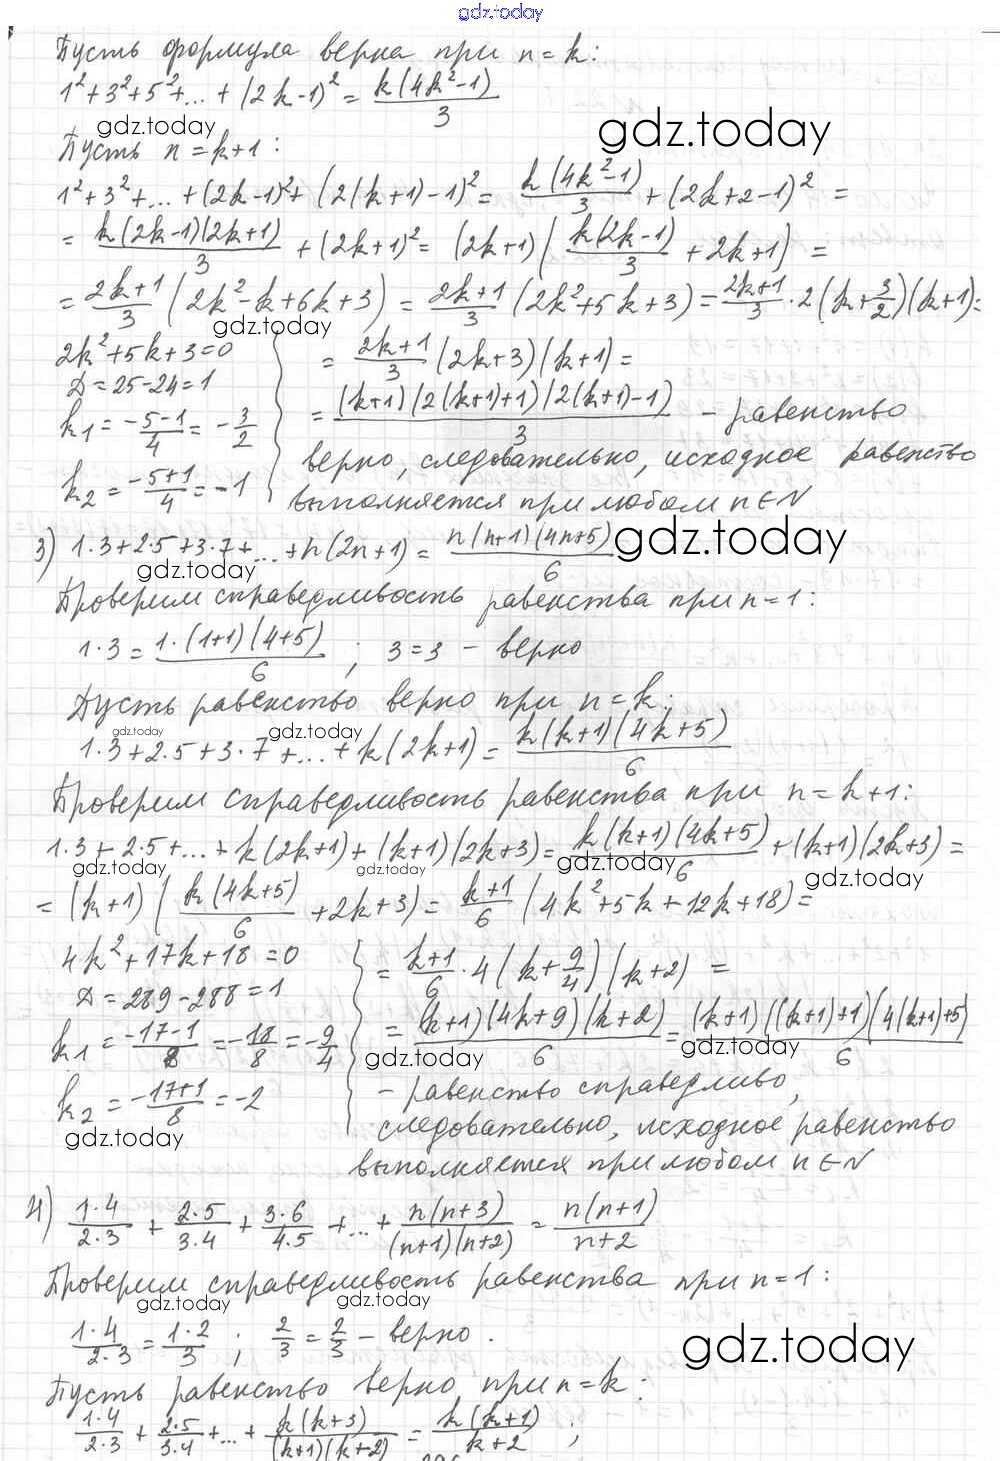 gdz.today
Пусть формула верна при n=k:
1²+3²+5²+...+(2k-1)²= k(4k²-1)/3
gdz.today gdz.today
Пусть n=k+1:
1²+3²+...+(2k-1)²+(2(k+1)-1)²= k(4k²-1)/3 +(2k+2-1)² =
= k(2k-1)(2k+1)/3 +(2k+1)²= (2k+1)(k(2k-1)/3 +2k+1) =
= 2k+1/3 (2k²-k+6k+3) = 2k+1/3 (2k²+5k+3)= 2k+1/3 ·2(k+3/2)(k+1)=
gdz.today
2k²+5k+3=0
Д=25-24=1
k₁= -5-1/4 = -3/2
k₂= -5+1/4 =-1
= 2k+1/3 (2k+3)(k+1)=
= (k+1)(2(k+1)+1)(2(k+1)-1)/3 - равенство
верно, следовательно, исходное равенство
выполняется при любом n∈N
3) 1·3+2·5+3·7+...+n(2n+1)= n(n+1)(4n+5)/6
gdz.today gdz.today
Проверим справедливость равенства при n=1:
1·3= 1·(1+1)(4+5)/6 ; 3=3 - верно
Пусть равенство верно при n=k:
gdz.today gdz.today
1·3+2·5+3·7+...+k(2k+1)= k(k+1)(4k+5)/6
Проверим справедливость равенства при n=k+1:
1·3+2·5+...+k(2k+1)+(k+1)(2k+3)= k(k+1)(4k+5)/6 +(k+1)(2k+3)=
gdz.today gdz.today gdz.today gdz.today
= (k+1)(k(4k+5)/6 +2k+3)= k+1/6 (4k²+5k+12k+18)=
4k²+17k+18=0
Д=289-288=1
k₁= -17-1/8 =-18/8=-9/4
k₂= -17+1/8 =-2
gdz.today
= k+1/6 ·4(k+9/4)(k+2) =
= (k+1)(4k+9)(k+2)/6 = (k+1)((k+1)+1)(4(k+1)+5)/6
gdz.today gdz.today
- равенство справедливо,
следовательно, исходное равенство
выполняется при любом n∈N
4) 1·4/2·3 + 2·5/3·4 + 3·6/4·5 +...+ n(n+3)/(n+1)(n+2) = n(n+1)/n+2
Проверим справедливость равенства при n=1:
gdz.today gdz.today
1·4/2·3 = 1·2/3 ; 2/3 = 2/3 - верно.
gdz.today
Пусть равенство верно при n=k:
1·4/2·3 + 2·5/3·4 +...+ k(k+3)/(k+1)(k+2) = k(k+1)/k+2 ;